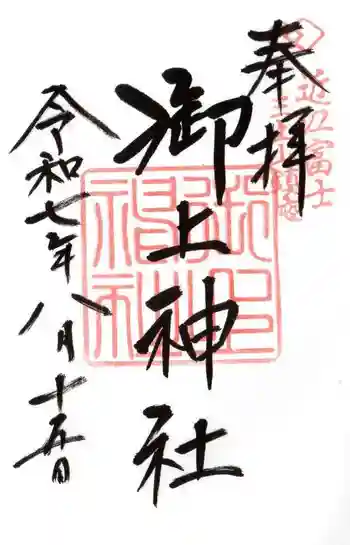 奉拝
近江富士
御上神社
令和七年八月十五日